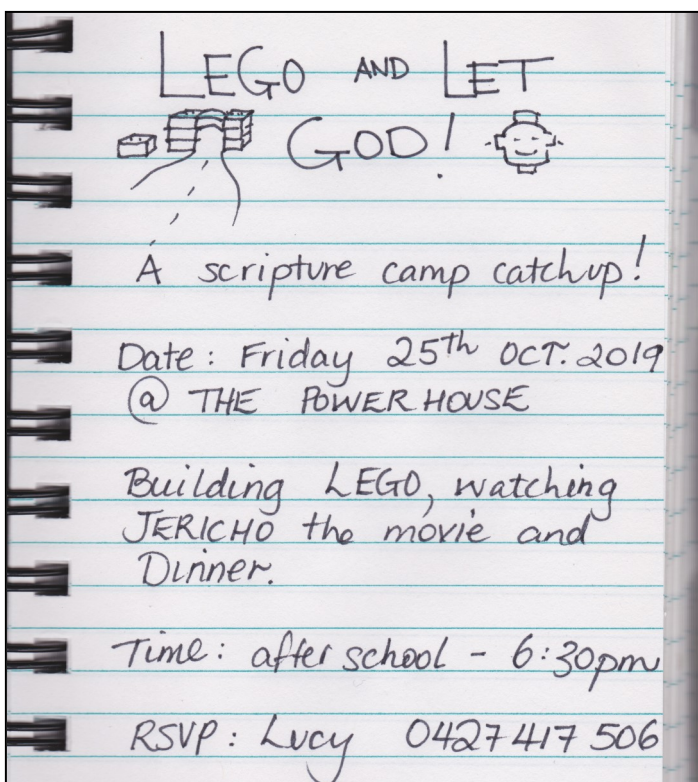 LEGO AND LET
GOD!
A scripture camp catchup!
Date: Friday 25th OCT. 2019
@ THE POWERHOUSE
Building LEGO, watching
JERICHO the movie and
Dinner.
Time: after school - 6:30pm
RSVP: Lucy 0427 417 506